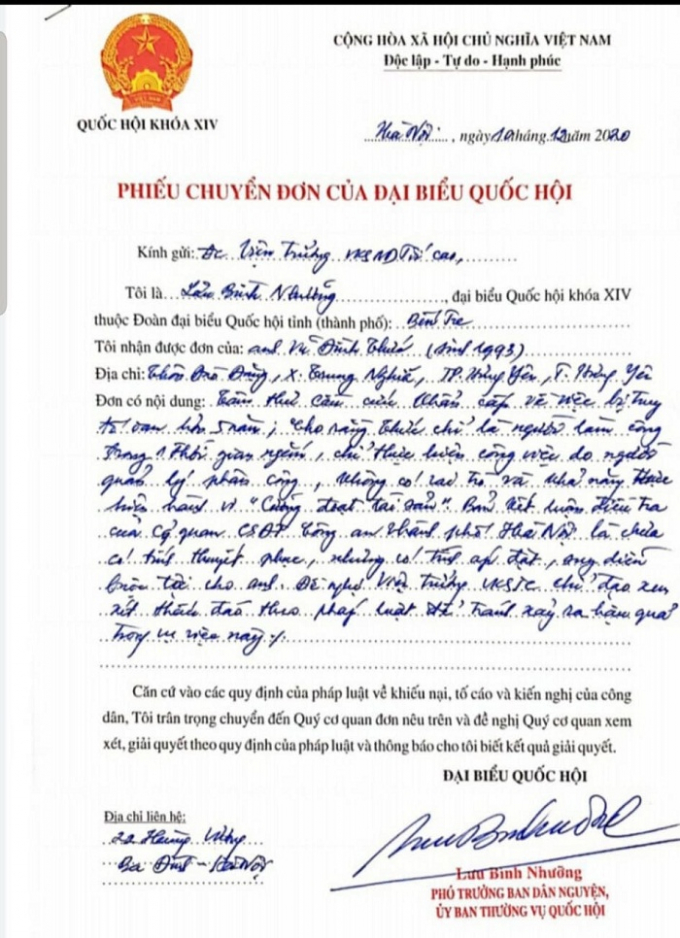 CỘNG HÒA XÃ HỘI CHỦ NGHĨA VIỆT NAM
Độc lập - Tự do - Hạnh phúc
QUỐC HỘI KHÓA XIV
Hà Nội, ngày 10 tháng 12 năm 2020
PHIẾU CHUYỂN ĐƠN CỦA ĐẠI BIỂU QUỐC HỘI
Kính gửi: Đc Viện Trưởng VKSND Tối cao,
Tôi là Lưu Bình Nhưỡng, đại biểu Quốc hội khóa XIV
thuộc Đoàn đại biểu Quốc hội tỉnh (thành phố): Bến Tre
Tôi nhận được đơn của: anh Vũ Đình (sinh 1993)
Địa chỉ: Thôn Đào Đặng, X. Trung Nghĩa, TP. Hưng Yên, T. Hưng Yên
Đơn có nội dung: Tâm thư cầu cứu khẩn cấp về việc bị truy
tố oan hơn 5 năm; Cho rằng chỉ là người làm công
trong 1 thời gian ngắn, chỉ thực hiện công việc do người
quản lý phân công, không có vai trò và khả năng thực
hiện hành vi "Cưỡng đoạt tài sản". Bản Kết luận điều tra
của Cơ quan CSĐT Công an thành phố Hà Nội là chưa
có tính thuyết phục, nhưng có tính áp đặt,
cho anh. Đề nghị Viện trưởng VKSTC chỉ đạo xem
xét thấu đáo theo pháp luật để tránh xảy ra hậu quả
trong vụ việc này./.
Căn cứ vào các quy định của pháp luật về khiếu nại, tố cáo và kiến nghị của công
dân, Tôi trân trọng chuyển đến Quý cơ quan đơn nêu trên và đề nghị Quý cơ quan xem
xét, giải quyết theo quy định của pháp luật và thông báo cho tôi biết kết quả giải quyết.
ĐẠI BIỂU QUỐC HỘI
Địa chỉ liên hệ:
22 Hùng Vương
Ba Đình - Hà Nội
Lưu Bình Nhưỡng
PHÓ TRƯỞNG BAN DÂN NGUYỆN,
ỦY BAN THƯỜNG VỤ QUỐC HỘI